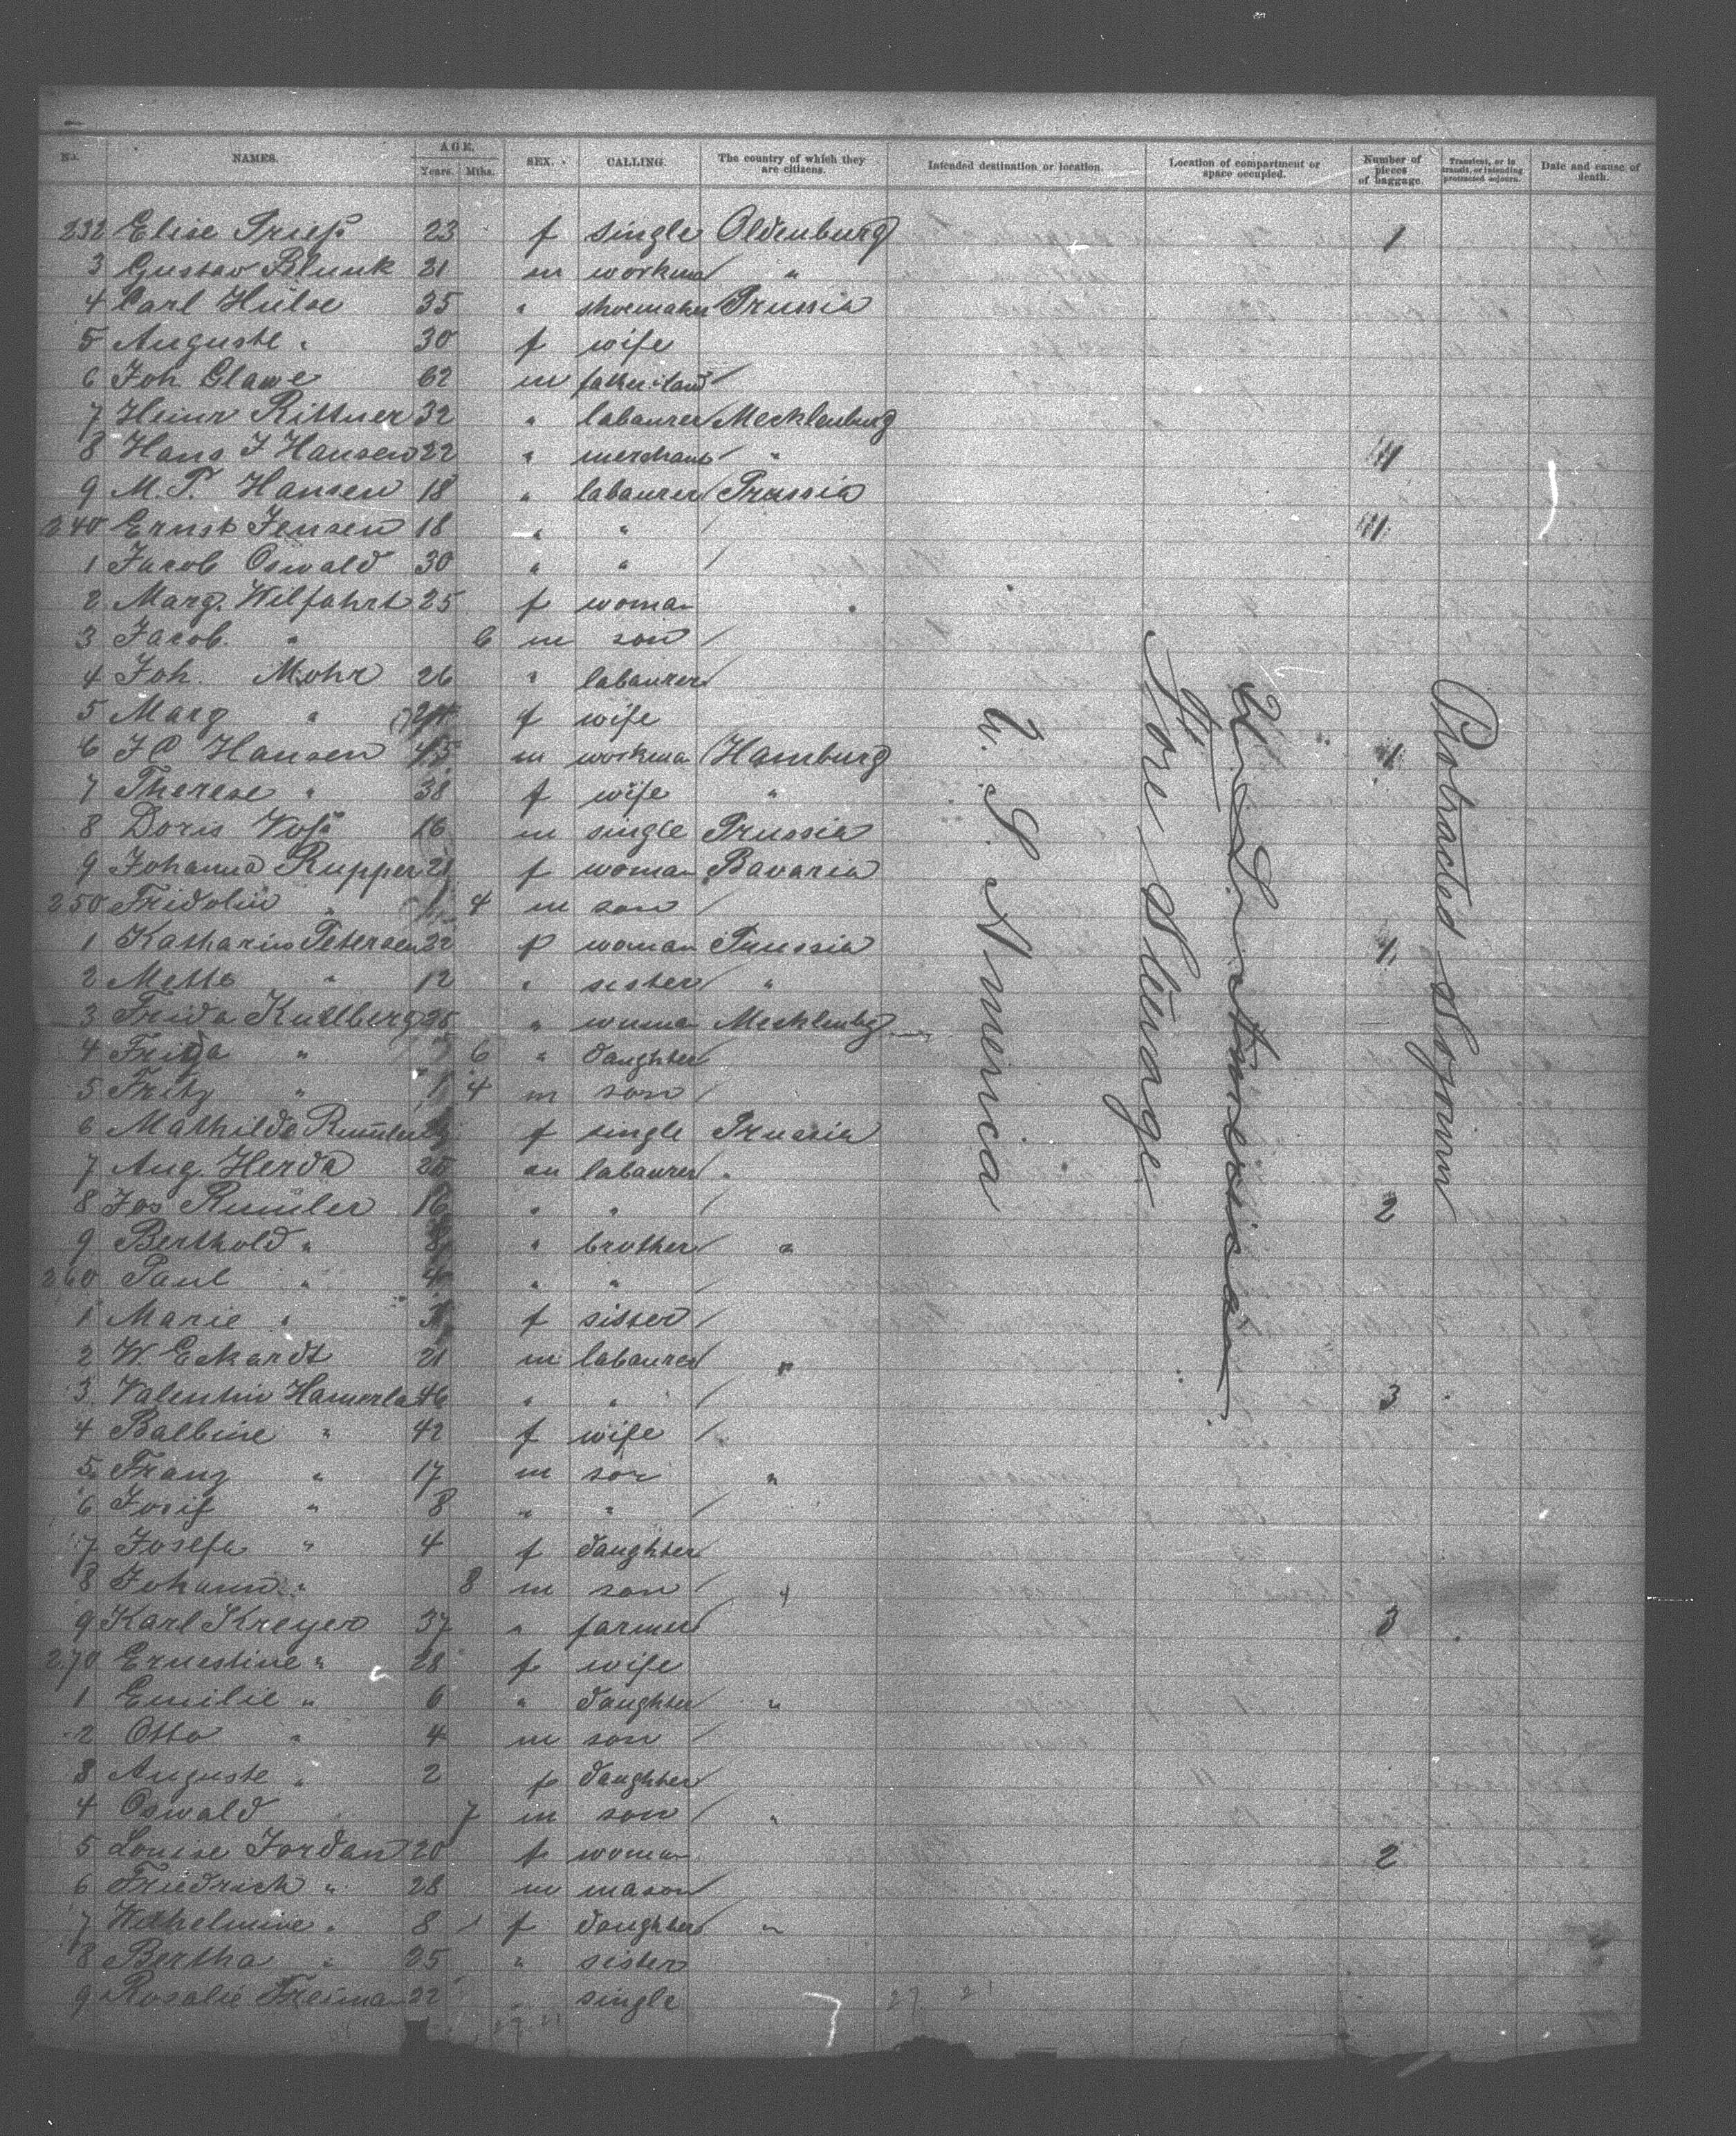 No. NAMES. AGE. Years. Mths. SEX. CALLING. The country of which they are citizens. Intended destination or location. Location of compartment or space occupied. Number of pieces of baggage. Transient, or in transit, or intending protracted sojourn. Date and cause of death.
232 Elise Prieß 23 f single Oldenburg 1
3 Gustav Blunk 21 m workma "
4 Carl Hülse 35 " shoemaker Prussia
5 Auguste " 30 f wife
6 Joh. Glawe 62 m
7 Heinr Rittner 32 " labaurer Mecklenburg
8 Hans J Hansen 22 " merchant "
9 M. P. Hansen 18 " labaurer Prussia
240 Ernst Jensen 18 " "
1 Jacob Oswald 30 " "
2 Marg. Wilfahrt 25 f woman
3 Jacob " 6 m son
4 Joh. Mohr 26 " labaurer
5 Marg " f wife
6 J P Hansen 45 m workma Hamburg 1
7 Therese " 38 f wife "
8 Doris Voß 16 m single Prussia
9 Johanna Rupper 21 f woman Bavaria
250 Fridolin " 1 4 m son
1 Katharin Petersen 22 f woman Prussia 1
2 Mette " 12 " sister "
3 Frida Kullberg " Mecklenbg
4 Frida " 6 " daughter
5 Fritz " 1 4 m son
6 Mathilde f single Prussia
7 Aug. Herda 25 m labaurer "
8 Jos Rumler 16 " " 2
9 Berthold " 8 " brother "
260 Paul " 4 " "
1 Marie " f sister
2 W. Eckardt 21 m labaurer "
3 Valentin Hamerla 46 " " 3
4 Balbine " 42 f wife
5 Franz " 17 m son "
6 Josif " 8 " "
7 Josefa " 4 f daughter
8 Johann " 8 m son "
9 Karl Kreyer 37 " farmer 3
270 Ernestine " 28 f wife
1 Emilie " 6 " daughter "
2 Otto " 4 m son
3 Auguste " 2 f daughter
4 Oswald " 7 m son "
5 Louise Jordan 20 f woman 2
6 Friedrich " 28 m mason
7 Wilhelmine " 8 f daughter "
8 Bertha " 25 " sister
9 Rosalie 22 " single
U. S. America
Fore Stirage
Protracted Sojourn